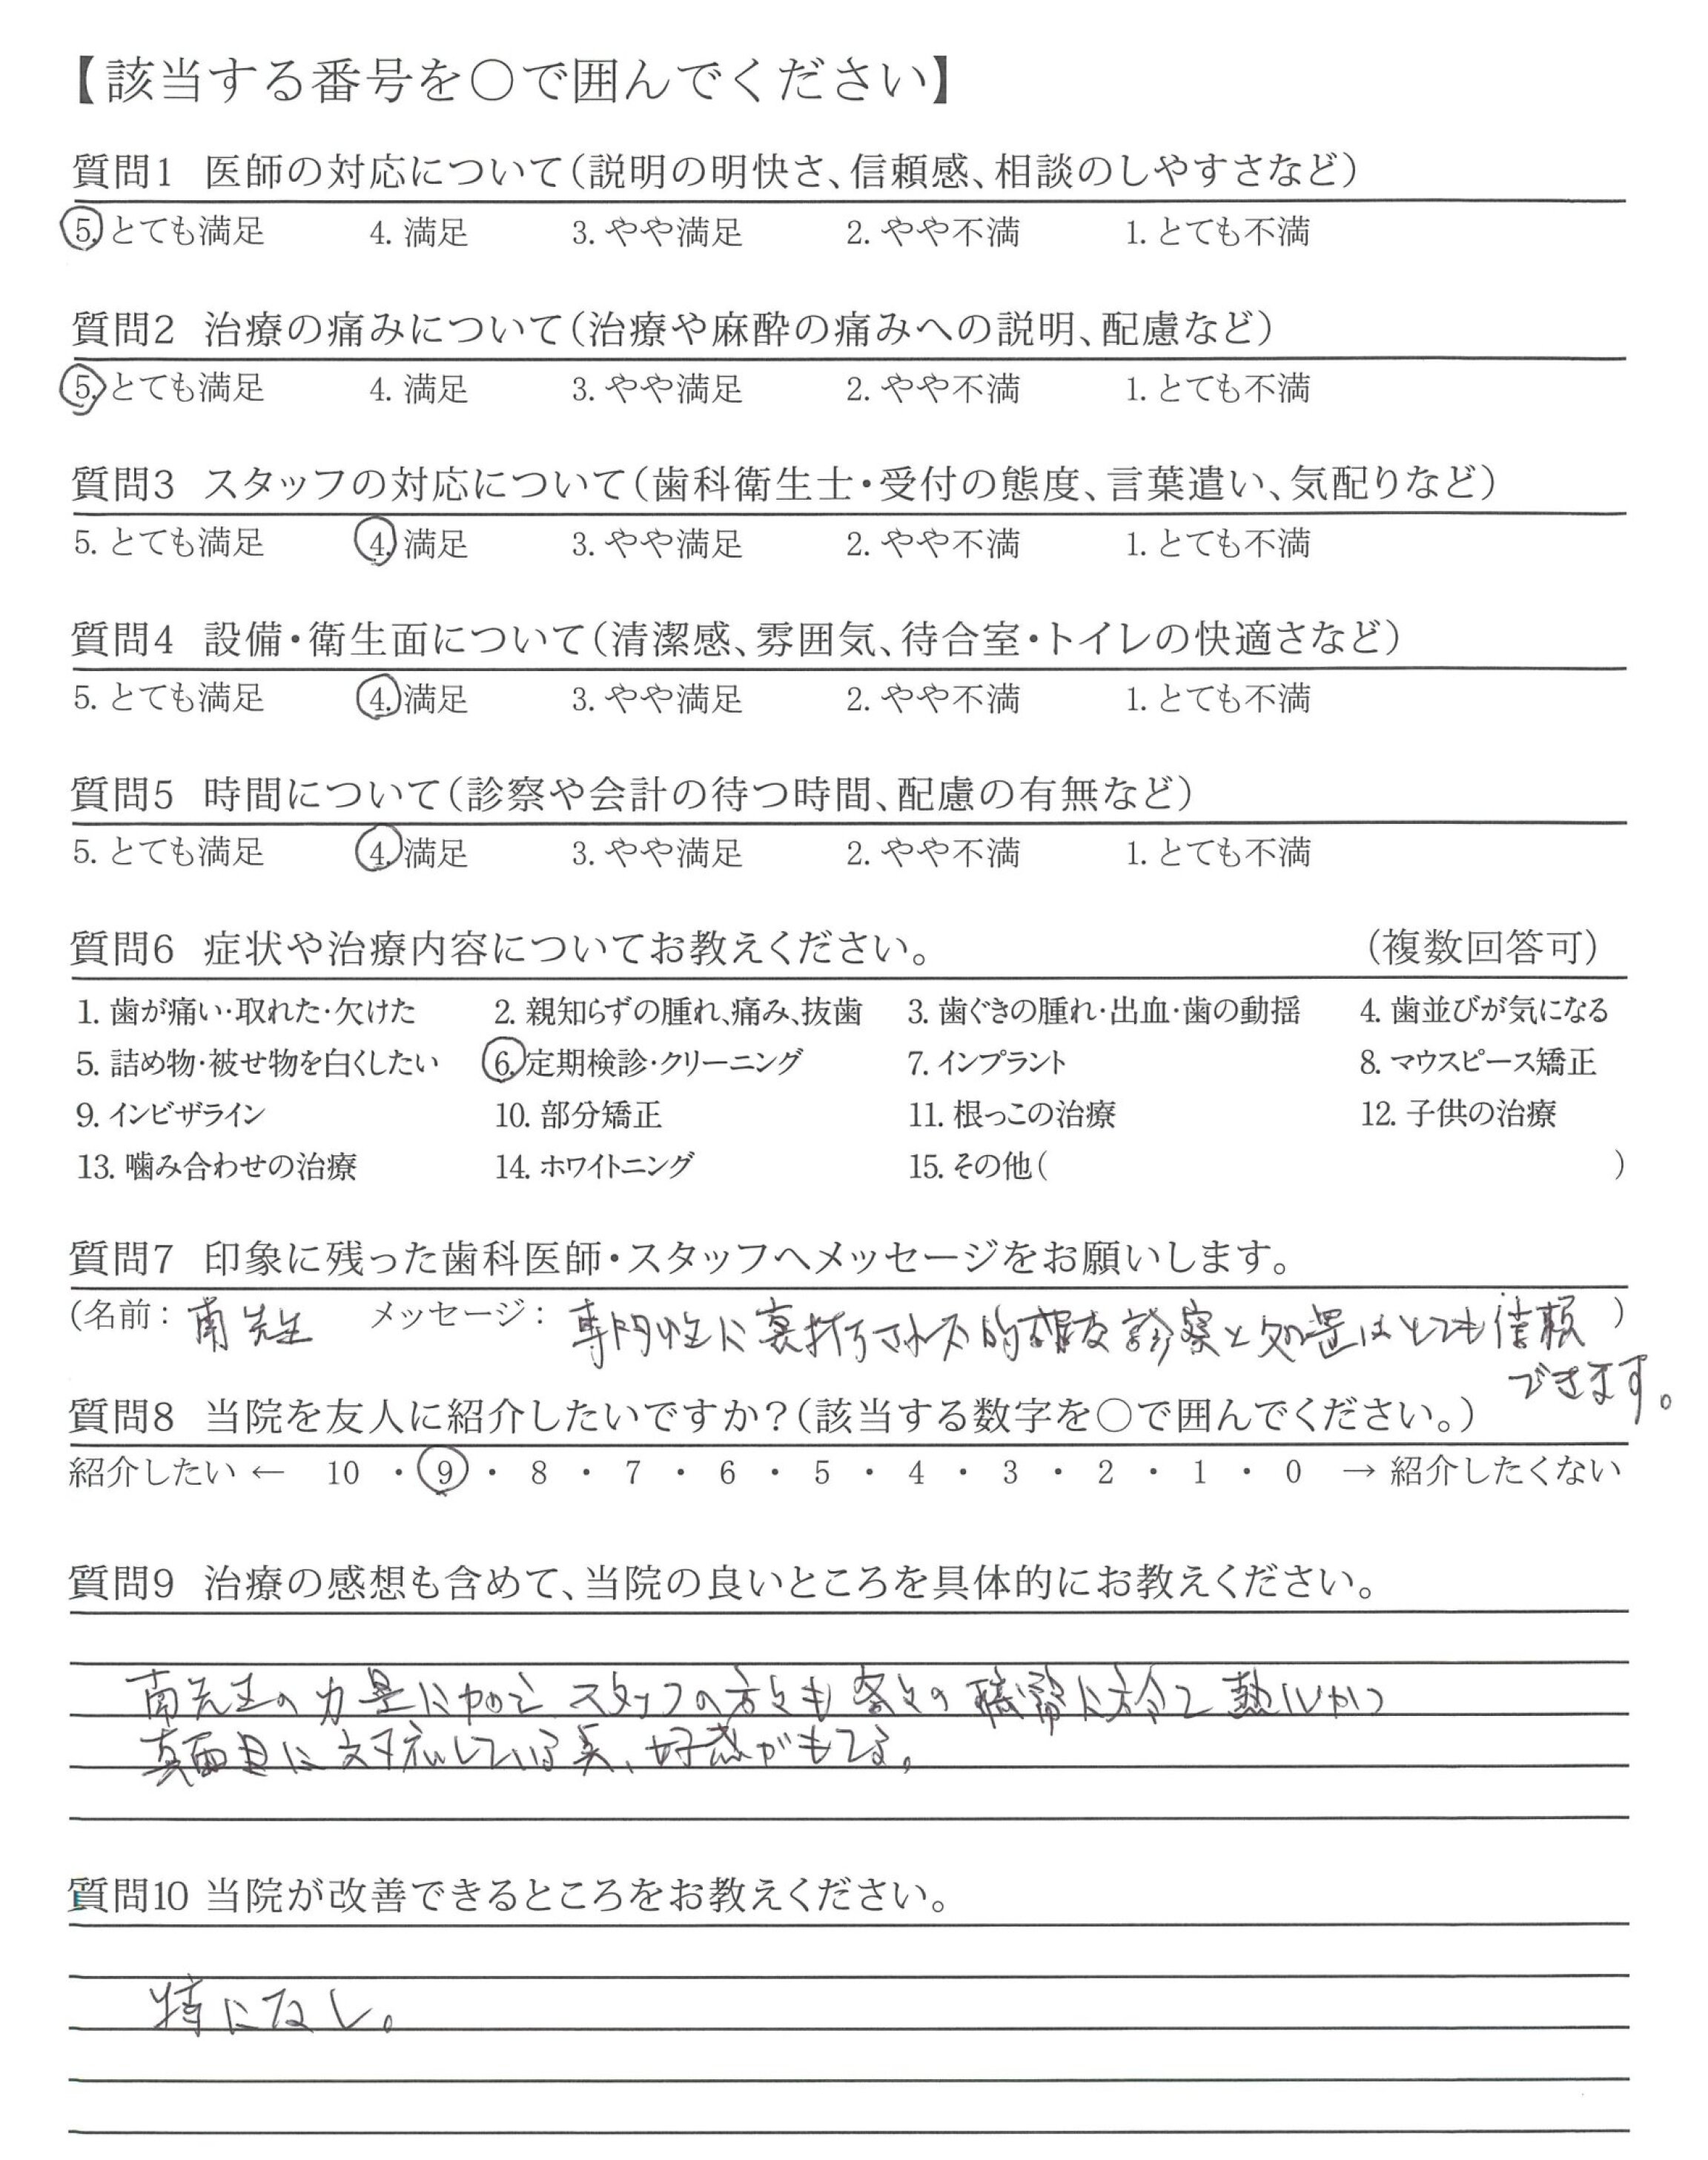 【該当する番号を〇で囲んでください】
質問1 医師の対応について(説明の明快さ、信頼感、相談のしやすさなど)
5. とても満足 4. 満足 3. やや満足 2. やや不満 1. とても不満
質問2 治療の痛みについて(治療や麻酔の痛みへの説明、配慮など)
5. とても満足 4. 満足 3. やや満足 2. やや不満 1. とても不満
質問3 スタッフの対応について(歯科衛生士・受付の態度、言葉遣い、気配りなど)
5. とても満足 4. 満足 3. やや満足 2. やや不満 1. とても不満
質問4 設備・衛生面について(清潔感、雰囲気、待合室・トイレの快適さなど)
5. とても満足 4. 満足 3. やや満足 2. やや不満 1. とても不満
質問5 時間について(診察や会計の待つ時間、配慮の有無など)
5. とても満足 4. 満足 3. やや満足 2. やや不満 1. とても不満
質問6 症状や治療内容についてお教えください。 (複数回答可)
1. 歯が痛い・取れた・欠けた 2. 親知らずの腫れ、痛み、抜歯 3. 歯ぐきの腫れ・出血・歯の動揺 4. 歯並びが気になる
5. 詰め物・被せ物を白くしたい 6. 定期検診・クリーニング 7. インプラント 8. マウスピース矯正
9. インビザライン 10. 部分矯正 11. 根っこの治療 12. 子供の治療
13. 噛み合わせの治療 14. ホワイトニング 15. その他( )
質問7 印象に残った歯科医師・スタッフへメッセージをお願いします。
(名前: 南先生 メッセージ: 専門性に裏打ちされた的確な診察と処置はとても信頼 )
できます。
質問8 当院を友人に紹介したいですか?(該当する数字を〇で囲んでください。)
紹介したい ← 10 ・ 9 ・ 8 ・ 7 ・ 6 ・ 5 ・ 4 ・ 3 ・ 2 ・ 1 ・ 0 → 紹介したくない
質問9 治療の感想も含めて、当院の良いところを具体的にお教えください。
南先生の力量に スタッフの方々も各々の職務に 熱心かつ
真面目に対応している点、好感がもてる。
質問10 当院が改善できるところをお教えください。
特になし。